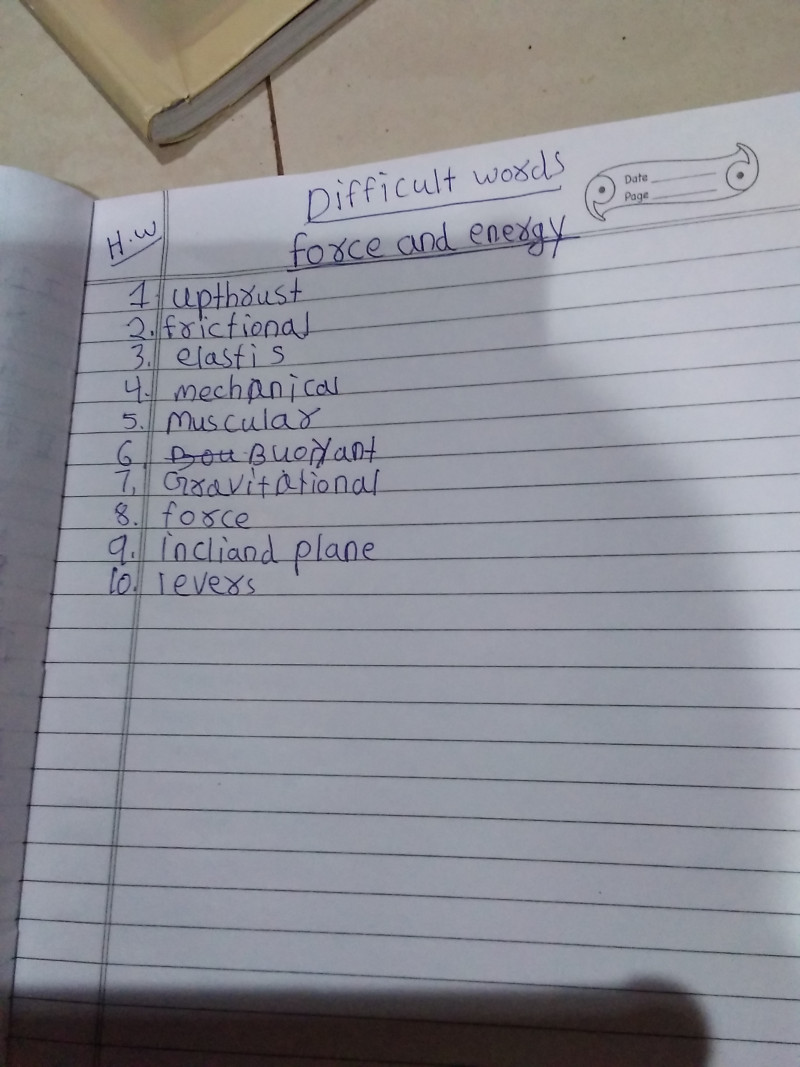 Difficult words
Date
Page
H.W
force and energy
1. upthrust
2. frictional
3. elastis
4. mechanical
5. Muscular
6. Bou Buoyant
7. Gravitational
8. force
9. incliand plane
10. levers